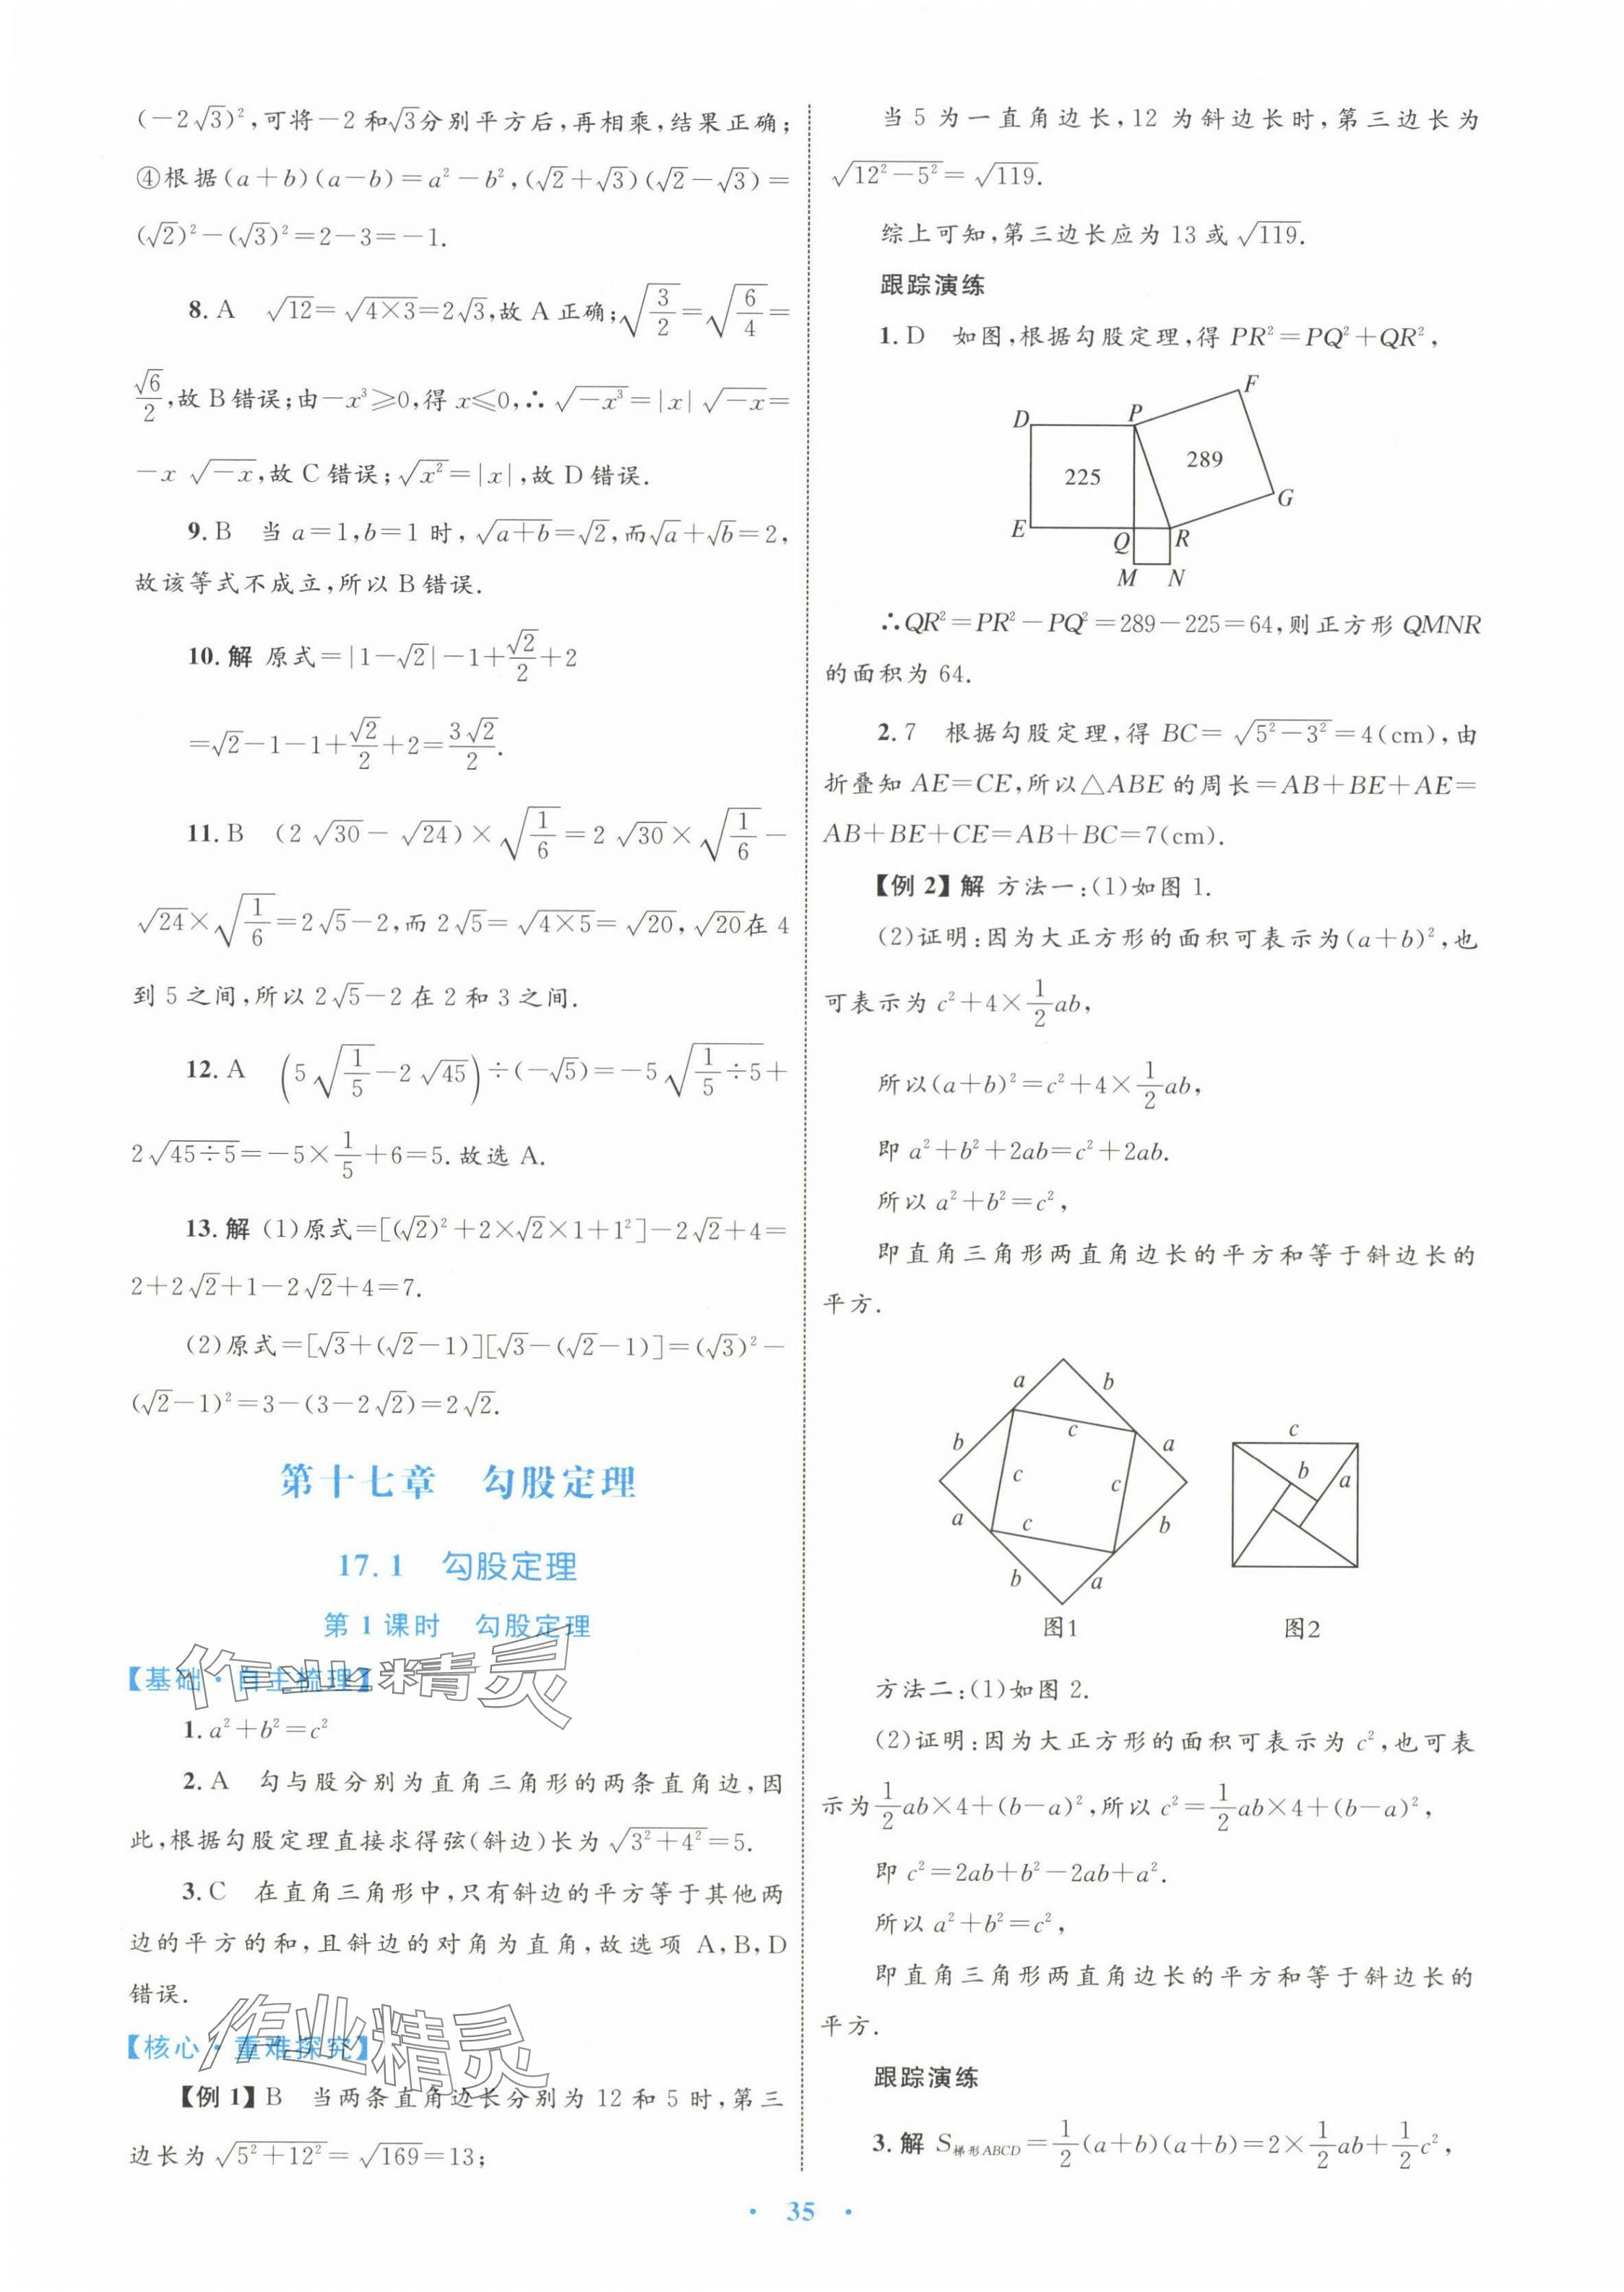 (-2√3)²,可将-2和√3分别平方后,再相乘,结果正确;
④根据(a+b)(a-b)=a²-b²,(√2+√3)(√2-√3)=
(√2)²-(√3)²=2-3=-1.
8.A √12=√(4×3)=2√3,故A正确;√(3/2)=√(6/4)=
√6/2,故B错误;由-x³≥0,得x≤0,∴√(-x³)=|x|√(-x)=
-x√(-x),故C错误;√(x²)=|x|,故D错误.
9.B 当a=1,b=1时,√(a+b)=√2,而√a+√b=2,
故该等式不成立,所以B错误.
10.解 原式=|1-√2|-1+√2/2+2
=√2-1-1+√2/2+2=3√2/2.
11.B (2√30-√24)×√(1/6)=2√30×√(1/6)-
√24×√(1/6)=2√5-2,而2√5=√(4×5)=√20,√20在4
到5之间,所以2√5-2在2和3之间.
12.A (5√(1/5)-2√45)÷(-√5)=-5√(1/5÷5)+
2√(45÷5)=-5×1/5+6=5.故选A.
13.解 (1)原式=[(√2)²+2×√2×1+1²]-2√2+4=
2+2√2+1-2√2+4=7.
(2)原式=[√3+(√2-1)][√3-(√2-1)]=(√3)²-
(√2-1)²=3-(3-2√2)=2√2.
第十七章 勾股定理
17.1 勾股定理
第1课时 勾股定理
【基础·自主梳理】
作业精灵
1.a²+b²=c²
2.A 勾与股分别为直角三角形的两条直角边,因
此,根据勾股定理直接求得弦(斜边)长为√(3²+4²)=5.
3.C 在直角三角形中,只有斜边的平方等于其他两
边的平方的和,且斜边的对角为直角,故选项A,B,D
错误.
【核心·重难探究】
作业精灵
【例1】B 当两条直角边长分别为12和5时,第三
边长为√(5²+12²)=√169=13;
当5为一直角边长,12为斜边长时,第三边长为
√(12²-5²)=√119.
综上可知,第三边长应为13或√119.
跟踪演练
1.D 如图,根据勾股定理,得PR²=PQ²+QR²,
F
D P
225 289
G
E Q R
M N
∴QR²=PR²-PQ²=289-225=64,则正方形QMNR
的面积为64.
2.7 根据勾股定理,得BC=√(5²-3²)=4(cm),由
折叠知AE=CE,所以△ABE的周长=AB+BE+AE=
AB+BE+CE=AB+BC=7(cm).
【例2】解 方法一:(1)如图1.
(2)证明:因为大正方形的面积可表示为(a+b)²,也
可表示为c²+4×1/2ab,
所以(a+b)²=c²+4×1/2ab,
即a²+b²+2ab=c²+2ab.
所以a²+b²=c²,
即直角三角形两直角边长的平方和等于斜边长的
平方.
a b
b c a
c c
a c b
b a
图1
c
b a
图2
方法二:(1)如图2.
(2)证明:因为大正方形的面积可表示为c²,也可表
示为1/2ab×4+(b-a)²,所以c²=1/2ab×4+(b-a)²,
即c²=2ab+b²-2ab+a².
所以a²+b²=c²,
即直角三角形两直角边长的平方和等于斜边长的
平方.
跟踪演练
3.解 S梯形ABCD=1/2(a+b)(a+b)=2×1/2ab+1/2c²,
· 35 ·